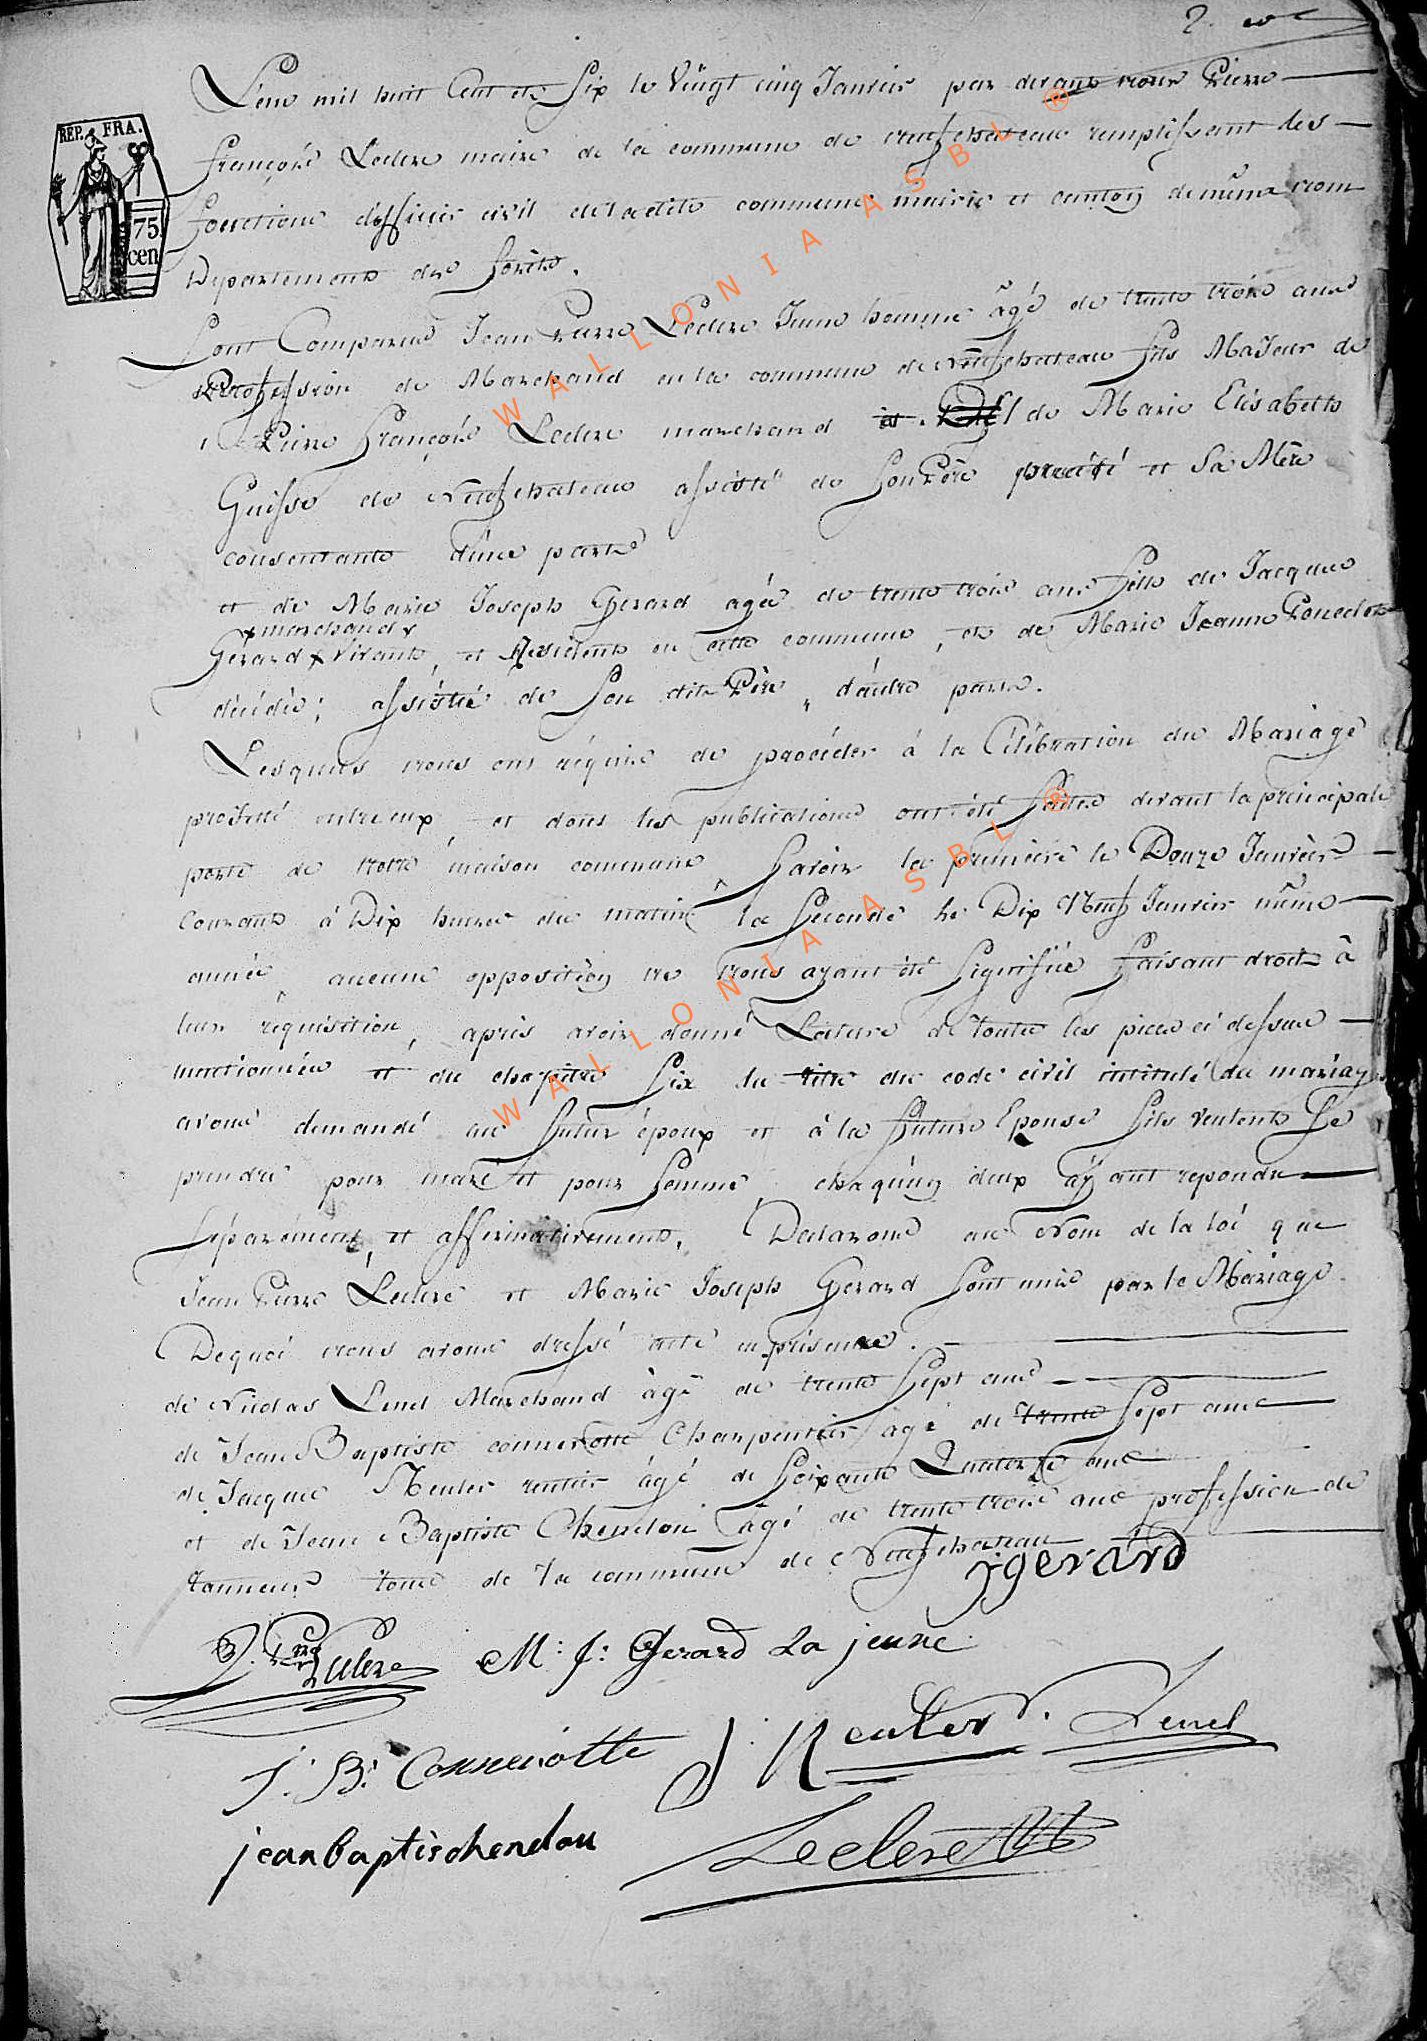 2.
REP. FRA.
75
cen
L'an mil huit Cent et Six le Vingt cinq Janvier par devant nous Pierre
françois Leclere maire de la commune de neufchateau remplissant les
fonctions d'officier civil de ladite commune mairie et canton de même nom
Departement des forêts.
Sont Comparus Jean Pierre Leclere Jeune homme âgé de trente trois ans
Profession de Marchand en la commune de Neufchateau fils Majeur de
Pierre françois Leclere marchand et de Marie Elisabeth
Guisse de Neufchateau assisté de Son Père précité et Sa Mère
consentante d'une parte
et de Marie Joseph Gerard agée de trente trois ans fille de Jacques
x marchand x
Gérard x Vivante, et Residente en cette commune, et de Marie Jeanne Poncelet
décédée; assistée de Son dit Père, d'autre parte.
Lesquels nous ont réquis de procéder à la Célébration du Mariage
projetté entre eux, et dont les publications ont été faites devant la principale
porte de notre maison commune, Savoir la première le Douze Janvier
Courant à Dix heures du matin, la Seconde le Dix Neuf Janvier même
année, aucune opposition ne nous ayant été Signifiée faisant droit à
leur réquisition, après avoir donné Lecture de toutes les pieces ci dessus
mentionnées et du chapitre Six du titre du code civil intitulé du mariage
avons demandé au futur époux et à la future Epouse s'ils veulent Se
prendre pour mari et pour femme, chaqu'un deux ayant repondu
Séparément, et affirmativement. Declarons au Nom de la loi que
Jean Pierre Leclere et Marie Joseph Gerard Sont unis par le Mariage.
De quoi nous avons dressé acte en présence.
de Nicolas Lenel Marchand âgé de trente Sept ans
de Jean Baptiste connerotte Charpentier age de trente Sept ans
de Jacques Reuter rentier âgé de Soixante Quatorze ans
et de Jean Baptiste Chendon âgé de trente trois ans profession de
tanneur tous de la commune de Neufchateau
j gerard
J. Pre Leclere M: J: Gerard La jeune
J: B: Connerotte J: Reuter. Lenel
jean baptis chendon Leclere